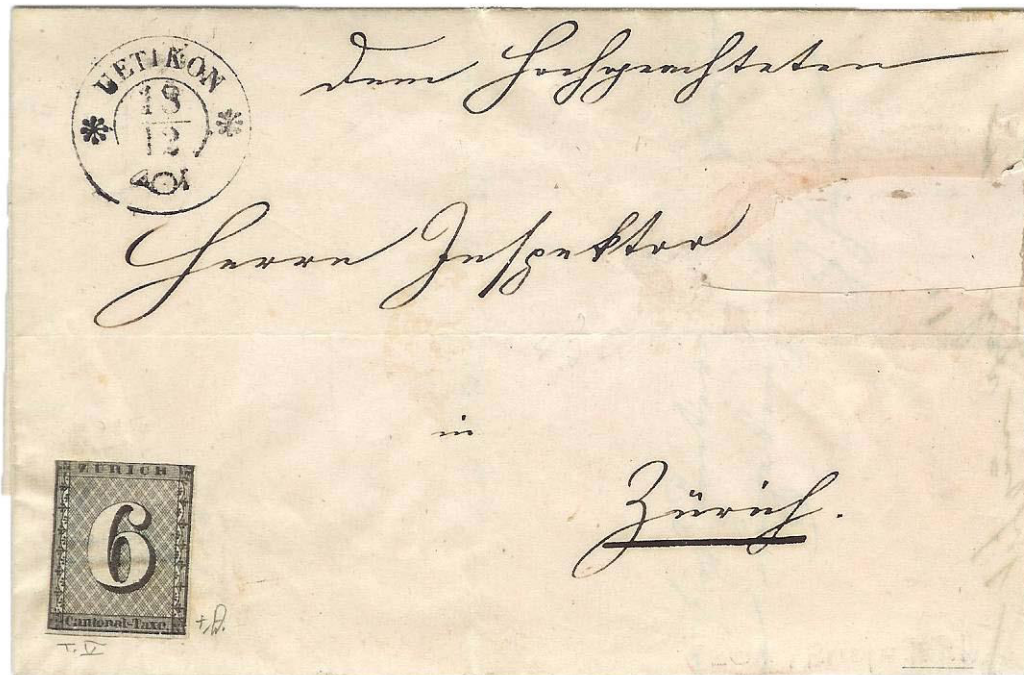 UETIKON
18
12
Dem Hochgeachteten
Herrn Inspektor
in
Zürich.
ZÜRICH
6
Cantonal-Taxe.
T.V